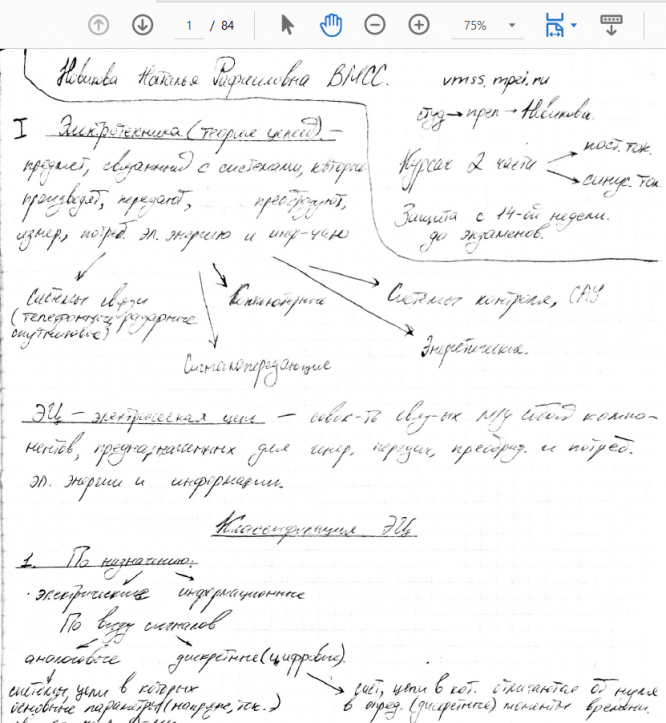 1 / 84 75%
Новикова Наталья Рафаиловна ВМСС.
vmss.mpei.ru
студ → преп → Новикова.
Курсач 2 части
пост. ток.
синус. ток
Защита с 14-ой недели.
до экзаменов.
I Электротехника (теория цепей). –
предмет, связанный с системами, которые
производят, передают, преобразуют,
измер, потреб. эл. энергию и инф-цию
Системы связи
(телефонные, радарные
спутниковые)
Компьютерные
Системы контроля, САУ
Энергетические.
Сигналопередающие
ЭЦ – электрическая цепь – совок-ть связ-ых м/у собой компо-
нентов, предназначенных для генер. передач, преобраз. и потреб.
эл. энергии и информации.
Классификация ЭЦ
1. По назначению:
· электрические информационные
По виду сигналов
аналоговые дискретные (цифровые).
системы, цепи в которых
основные параметры (напряже, ток.)
сист, цепи в кот. отличаются от нуля
в опред. (дискретные) моменты времени.